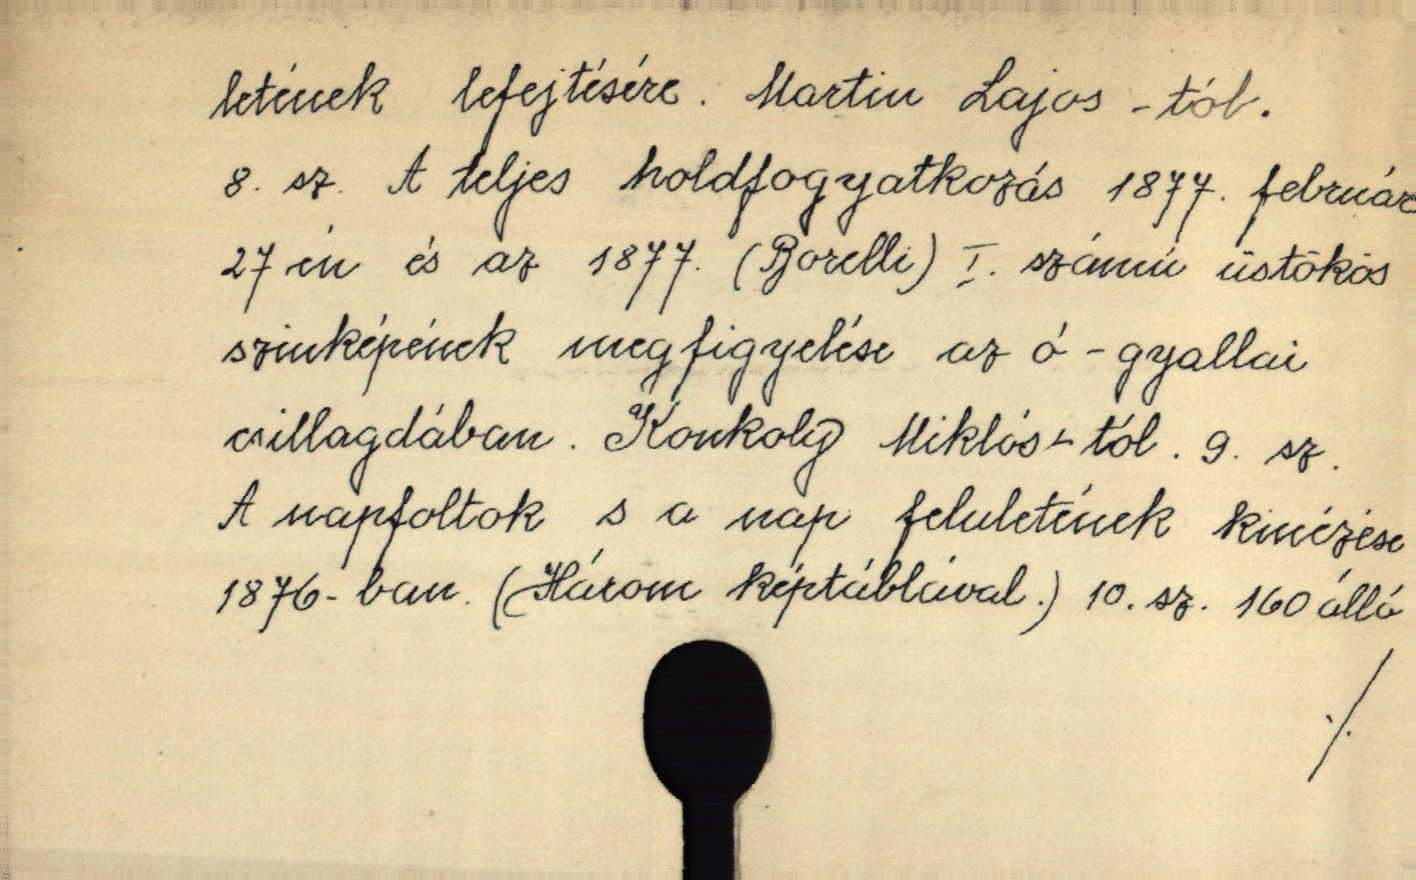 letének lefejtésére. Martin Lajos -tól.
8. sz. A teljes holdfogyatkozás 1877. február
27-én és az 1877. (Borelli) I. számú üstökös
szinképének megfigyelése az ó-gyallai
csillagdában. Konkoly Miklós-tól. 9. sz.
A napfoltok s a nap feluletének kinézése
1876-ban. (Három képtáblával.) 10. sz. 160 álló
./.